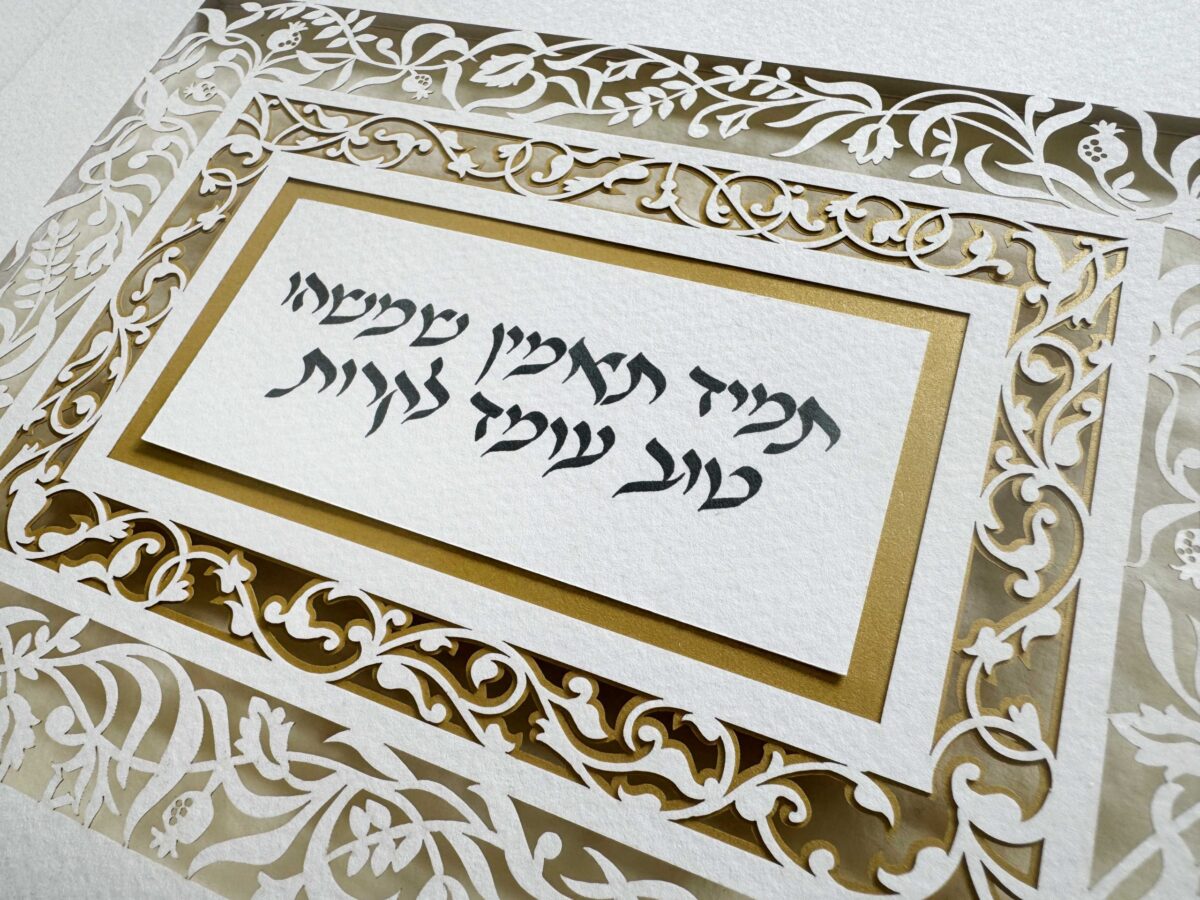 תמיד תאמין שמשהו
טוב עומד לקרות